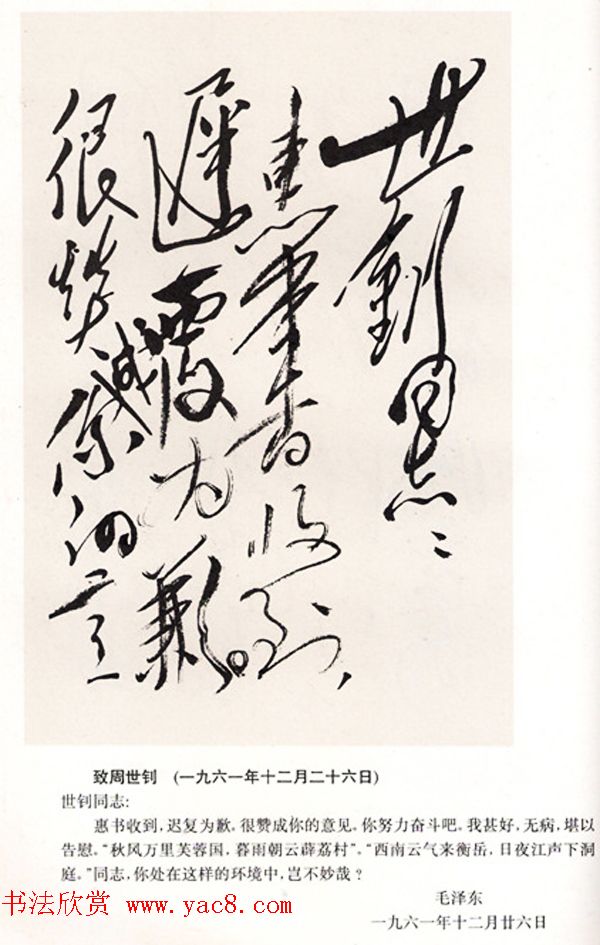 世釗同志：
惠書收到，
遲覆为歉。
很赞成你的意
致周世钊　(一九六一年十二月二十六日)
世钊同志:
惠书收到,迟复为歉。很赞成你的意见。你努力奋斗吧。我甚好,无病,堪以
告慰。“秋风万里芙蓉国,暮雨朝云薜荔村”。“西南云气来衡岳,日夜江声下洞
庭。”同志,你处在这样的环境中,岂不妙哉?
毛泽东
一九六一年十二月廿六日
书法欣赏 www.yac8.com